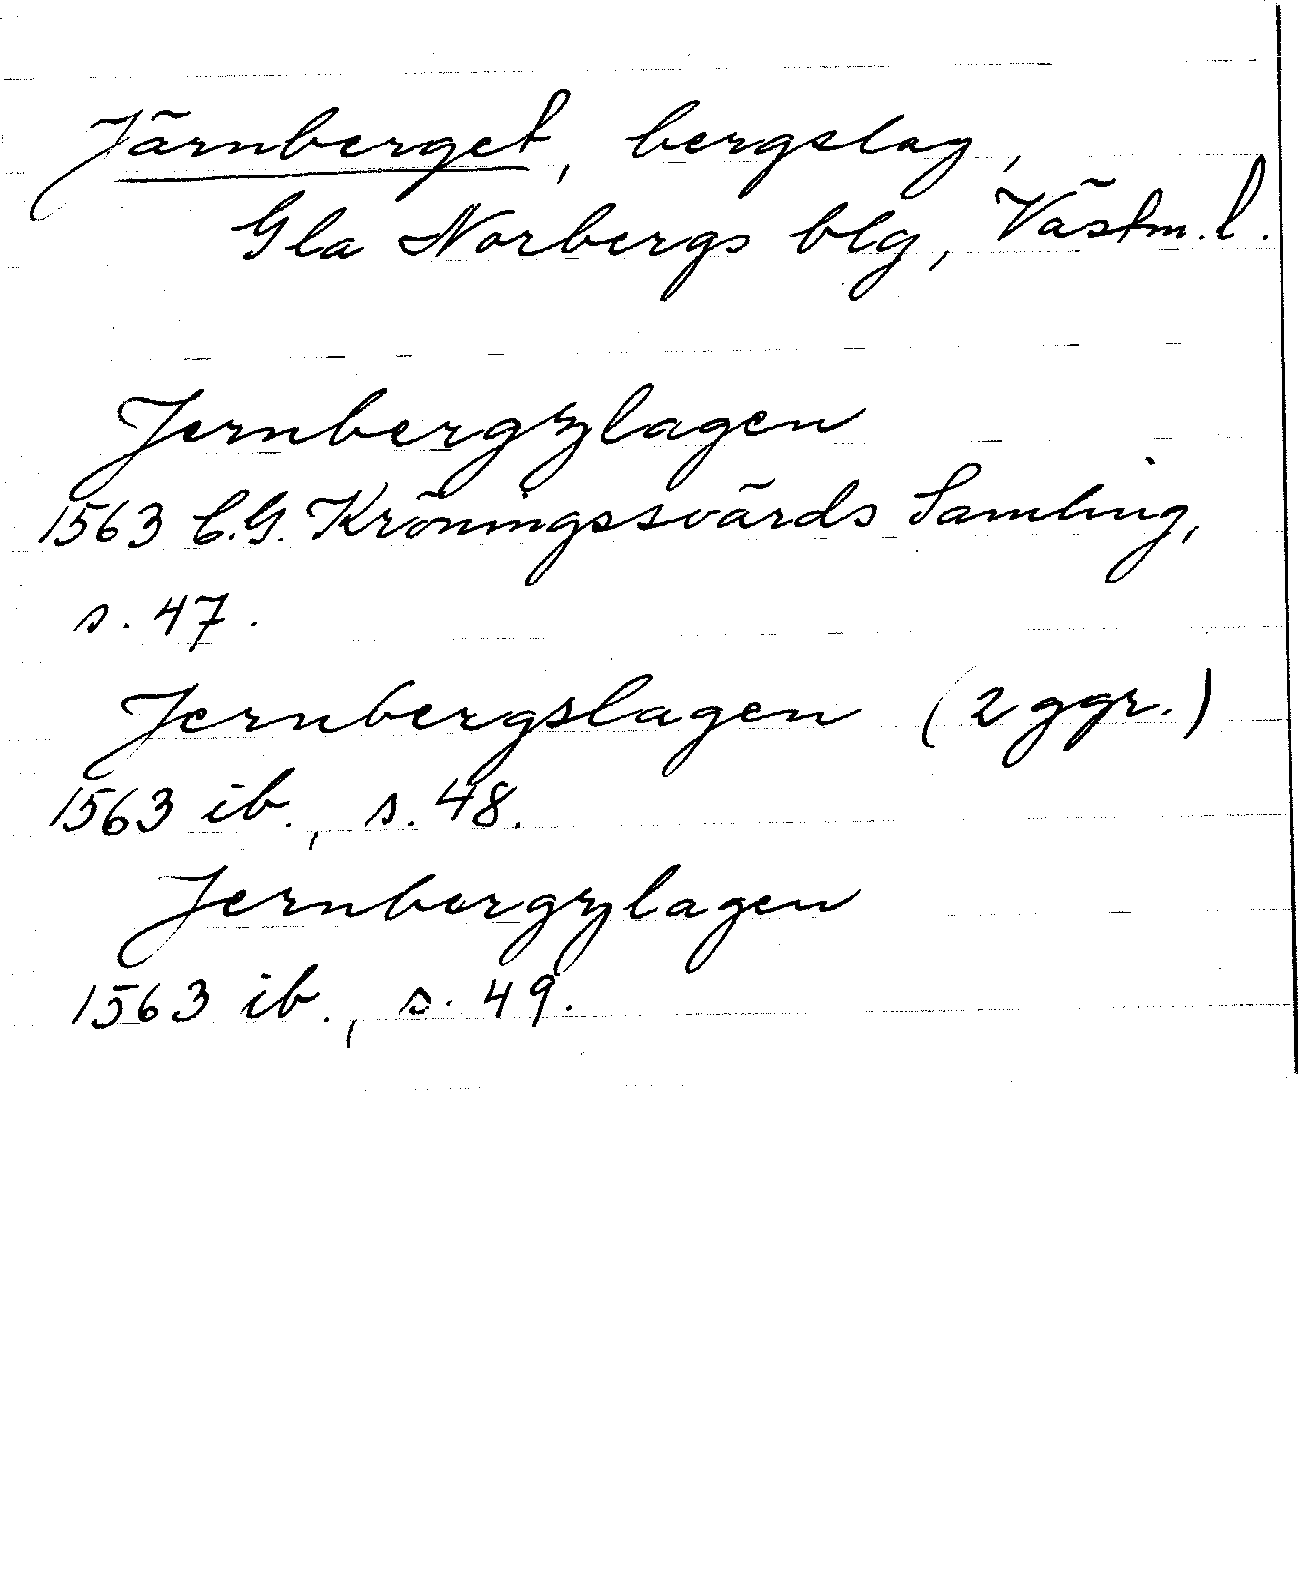 Järnberget, bergslag,
Gla Norbergs blg, Västm. l.
Jernbergzlagen
1563 C.G. Kröningssvärds Samling,
s. 47.
Jernbergslagen (2 ggr.)
1563 ib., s. 48.
Jernbergzlagen
1563 ib., s. 49.